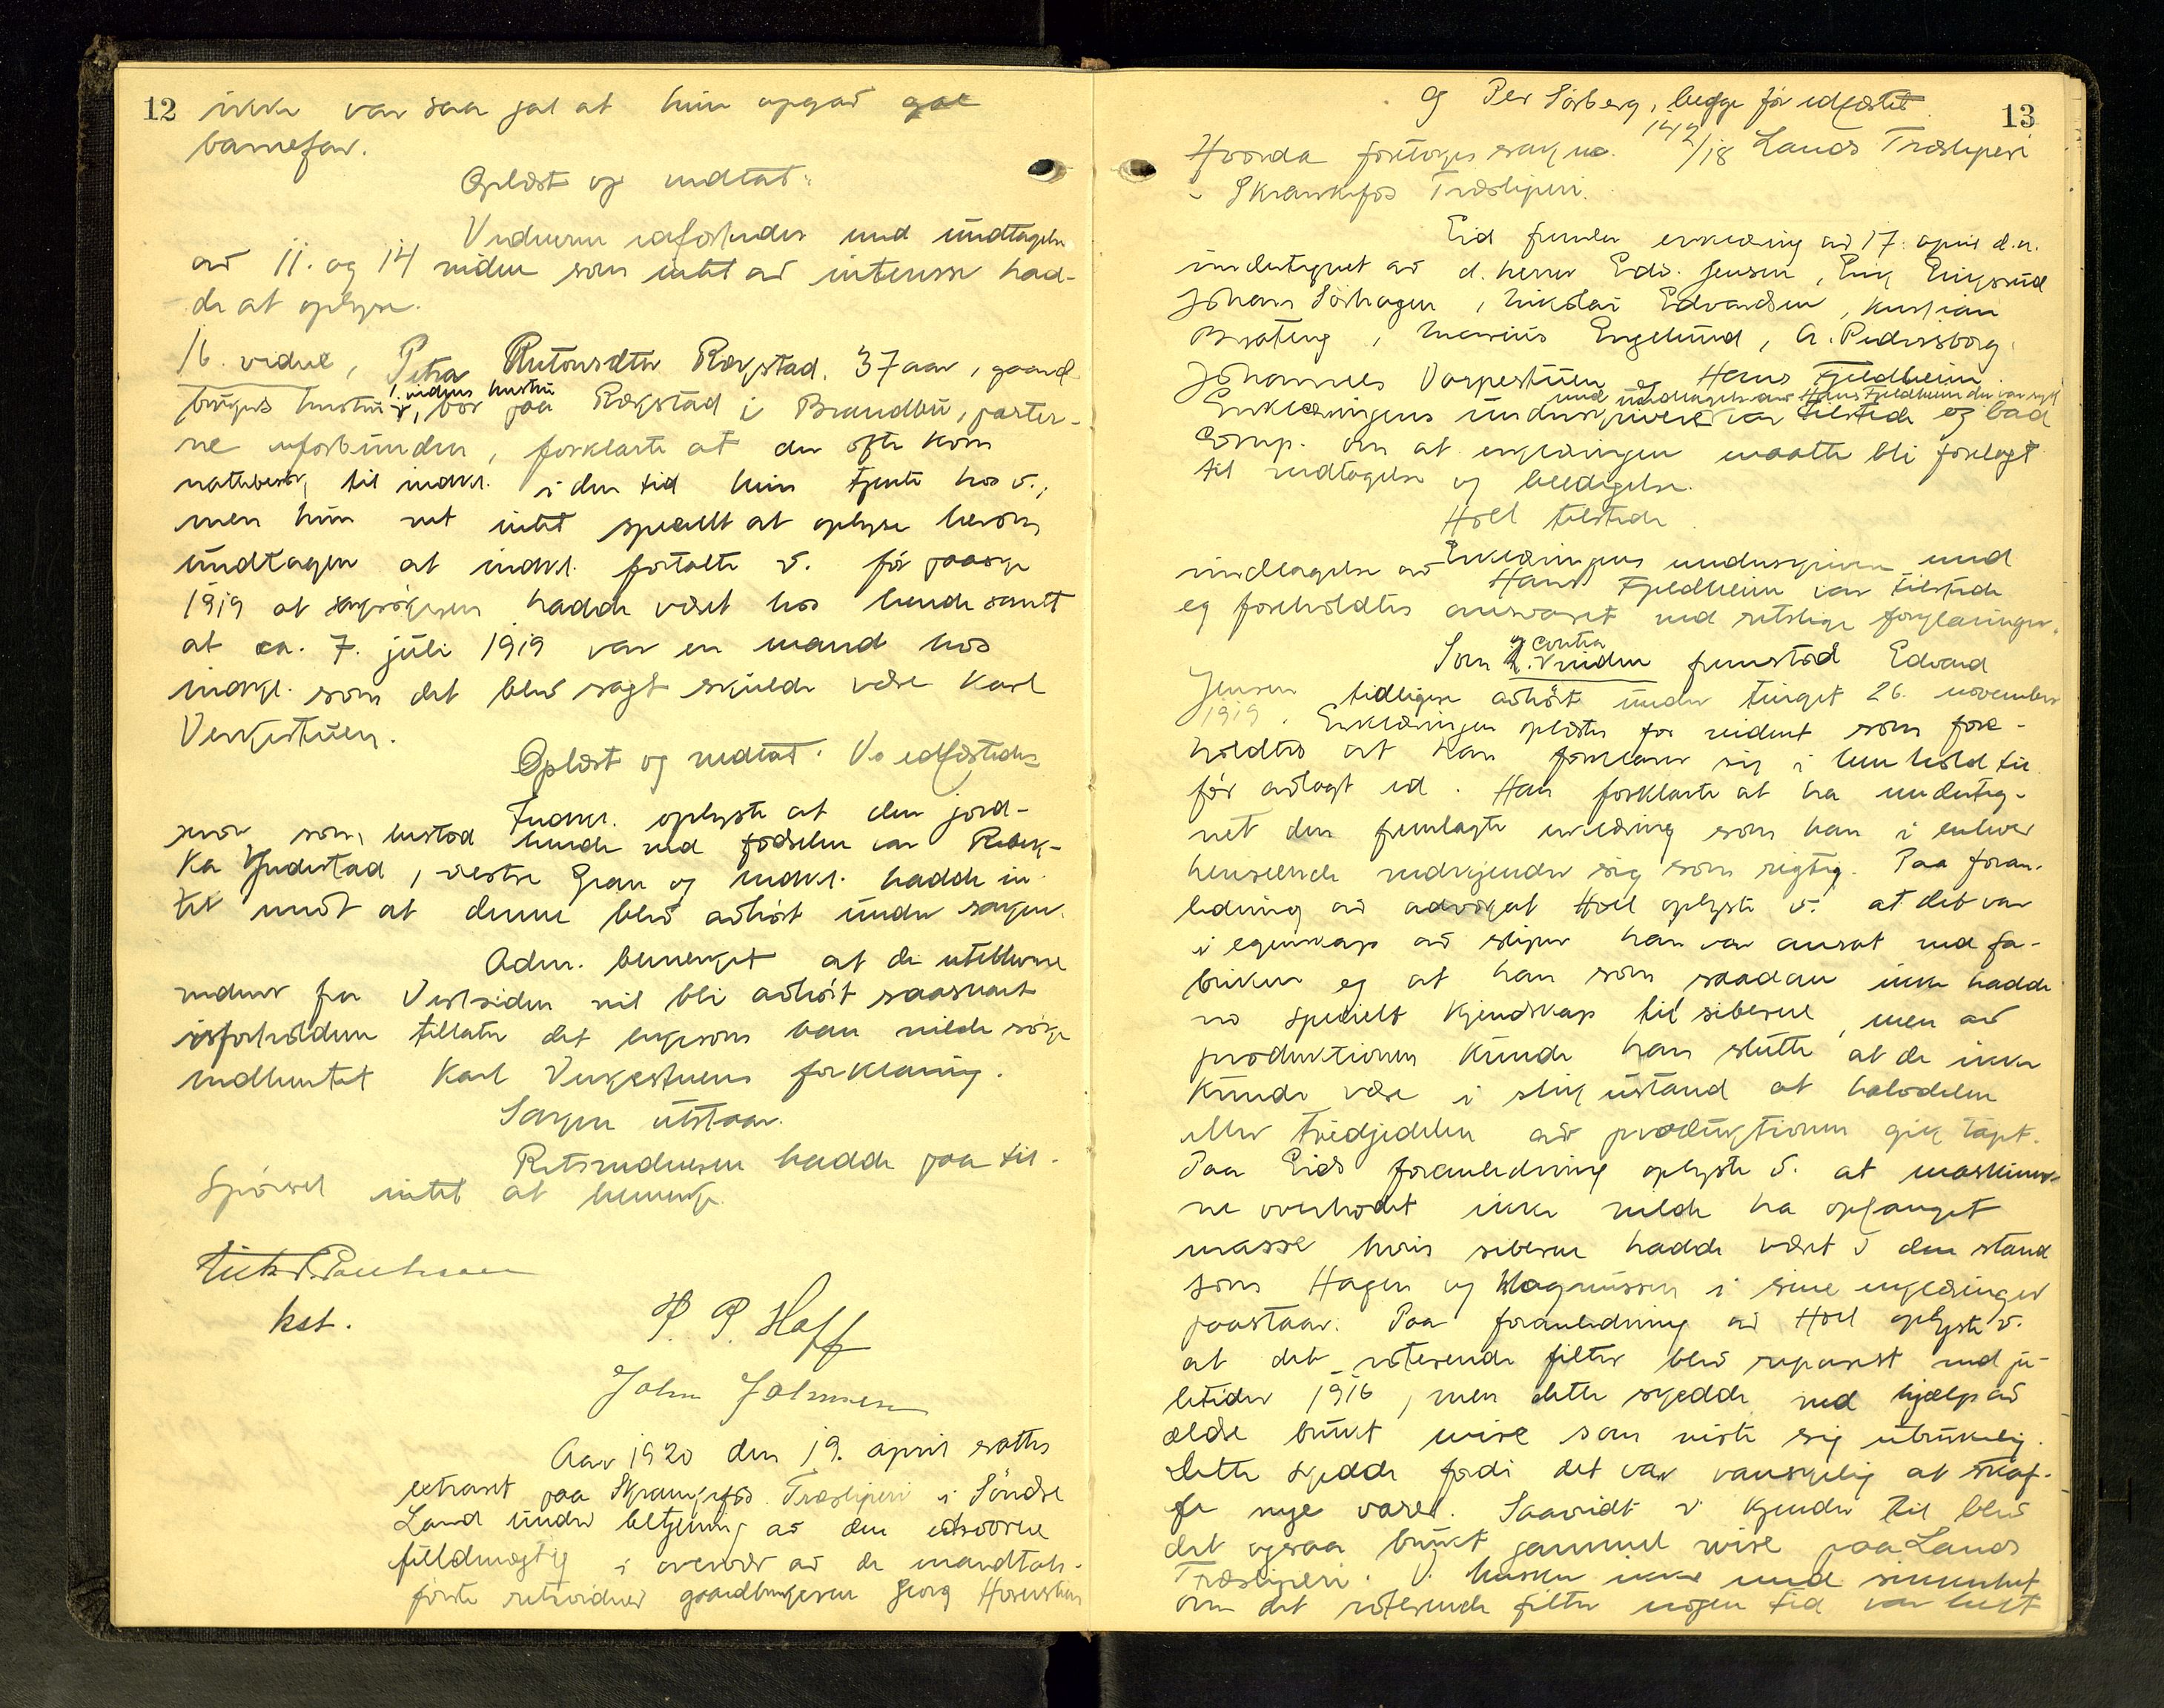 12
ikke var saa gal at hun opgav gal
barnefar.
Oplæst og vedtat.
Vidnerne edfæstedes med undtagelse
av 11. og 14 vidne som intet av interesse had-
de at oplyse.
16. vidne, Petra Antonsdtr Rækstad, 37 aar, gaard-
brukers hustru, 1. vidnes hustru, bor paa Rækstad i Brandbu, parter-
ne uforbunden, forklarte at der ofte kom
nattebesøk til indkl. i den tid hun tjente hos v.,
men hun vet intet specielt at oplyse herom
undtagen at indkl. fortalte v. før paaske
1919 at saksøkeren hadde været hos hende samt
at ca. 7. juli 1919 var en mand hos
indkl. som det blev sagt skulde være Karl
Verkestuen.
Oplæst og vedtat. V. edfæstedes
Indkl. oplyste at den jord-
mor som bistod hende ved fødselen var Rebek-
ka Gudestad, vestre Gran og indkl. hadde in-
tet imot at denne blev avhørt under saken.
Adm. bemerket at de uteblevne
vidner fra Vestsiden vil bli avhørt saasnart
isforholdene tillater det likesom han vilde søke
indhentet Karl Verkestuens forklaring.
Saken utstaar.
Retsvidnerne hadde paa til-
spørsel intet at bemerke.
kst.
P. P. Hoff
John Johnsen
Aar 1920 den 19. april sattes
extraret paa Skrankefos Træsliperi i Søndre
Land under betjening av den edsvorne
fuldmægtig i overvær av de mandtals-
førte retsvidner gaardbrukerne Georg
13
og Per Sörberg, begge før edfæstet.
Hvorda foretoges sak no. 142/18 Lands Træsliperi
- Skrankefos Træsliperi.
Eid fremla erklæring av 17. april d.a.
undertegnet av d.herrer Edv. Jensen, Erik Eriksrud
Johans Sörhagen, Nikolai Edvardsen, Kristian
Brateng, Marius Engelund, A. Pedersborg,
Johannes Vaspestuen og Hans Fjeldheim.
Erklæringens underskrivere med undtagelse av Hans Fjeldheim der var syk var tilstede og bad
om at erklæringen maatte bli forelagt
til vedtagelse og beedigelse.
Holl tilstede.
Erklæringens underskrivere med
undtagelse av Hans Fjeldheim var tilstede
og foreholdtes ansvaret ved retslige forklaringer.
Som 2. og contra vidne fremstod Edvard
Jensen tidligere avhørt under tinget 26. november
1919. Erklæringen oplæstes for vidnet som fore-
holdtes at han forklarer sig i henhold til
før avlagt ed. Han forklarte at ha underteg-
net den fremlagte erklæring som han i enhver
henseende vedkjender sig som rigtig. Paa foran-
ledning av advokat Holl oplyste v. at det var
i egenskap av sliper han var ansat ved fa-
briken og at han som saadan ikke hadde
no specielt kjendskap til silerne, men av
produktionen kunde han slutte at de ikke
kunde være i slik ustand at halvdelen
eller tredjedelen av produktionen gik tapt.
Paa Eids foranledning oplyste v. at maskiner-
ne overhodet ikke vilde ha opfanget
masse hvis silerne hadde været i den stand
som Hagen og Magnussen i sine erklæringer
paastaar. Paa foranledning av Holl oplyste v.
at det roterende filter blev reparert ved ju-
letider 1916, men dette skedde ved hjælp av
ældre brukt wire som viste sig utrukelig.
Dette skedde fordi det var vanskelig at skaf-
fe nye varer. Saavidt v. kjender til blev
det ogsaa brukt gammel wire paa Lands
Træsliperi. V. husker ikke med sikkerhet
om det roterende filter nogen tid var lukt